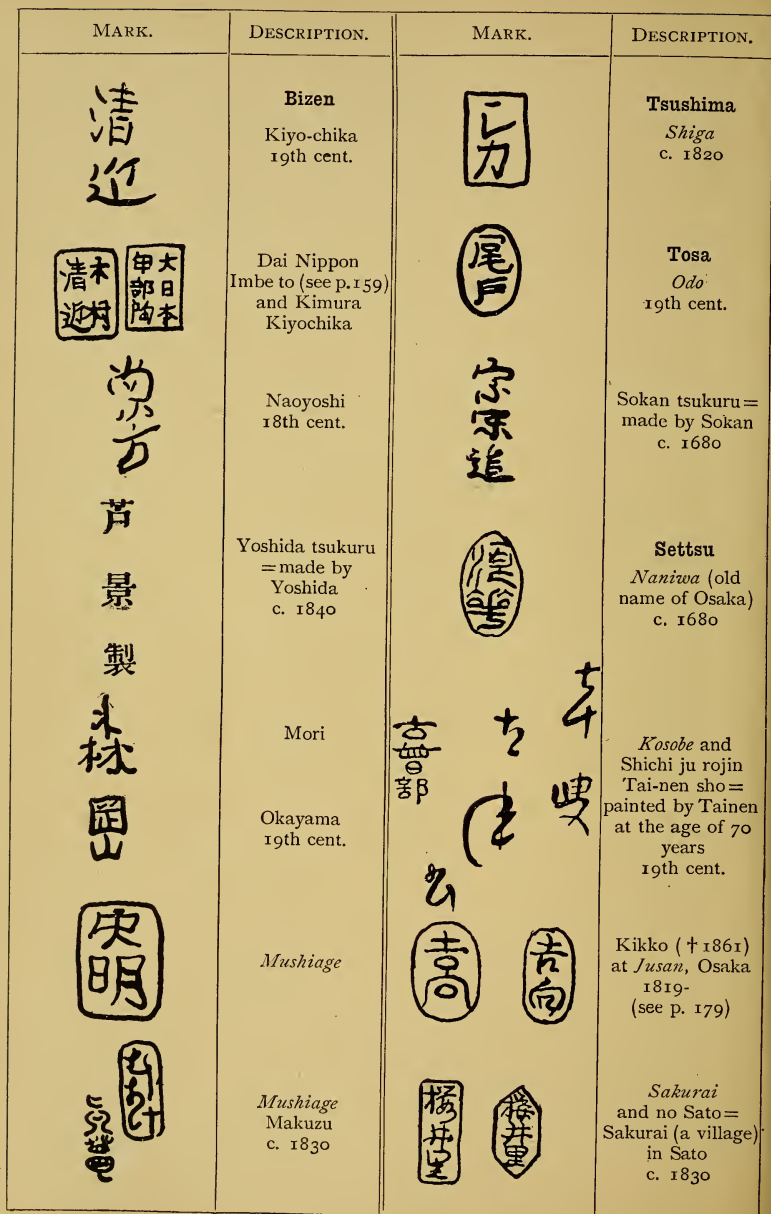 MARK.
DESCRIPTION.
清
近
Bizen
Kiyo-chika
19th cent.
木村
清近
大日本
伊部陶
Dai Nippon
Imbe to (see p. 159)
and Kimura
Kiyochika
Naoyoshi
18th cent.
芦
景
製
Yoshida tsukuru
=made by
Yoshida
c. 1840
森
Mori
岡山
Okayama
19th cent.
明
Mushiage
むしあけ
Mushiage
Makuzu
c. 1830
MARK.
DESCRIPTION.
Tsushima
Shiga
c. 1820
尾戸
Tosa
Odo
19th cent.
Sokan tsukuru=
made by Sokan
c. 1680
Settsu
Naniwa (old
name of Osaka)
c. 1680
古曽部
七十
叟
Kosobe and
Shichi ju rojin
Tai-nen sho=
painted by Tainen
at the age of 70
years
19th cent.
吉向
吉向
Kikko (†1861)
at Jusan, Osaka
1819-
(see p. 179)
桜井里
Sakurai
and no Sato=
Sakurai (a village)
in Sato
c. 1830